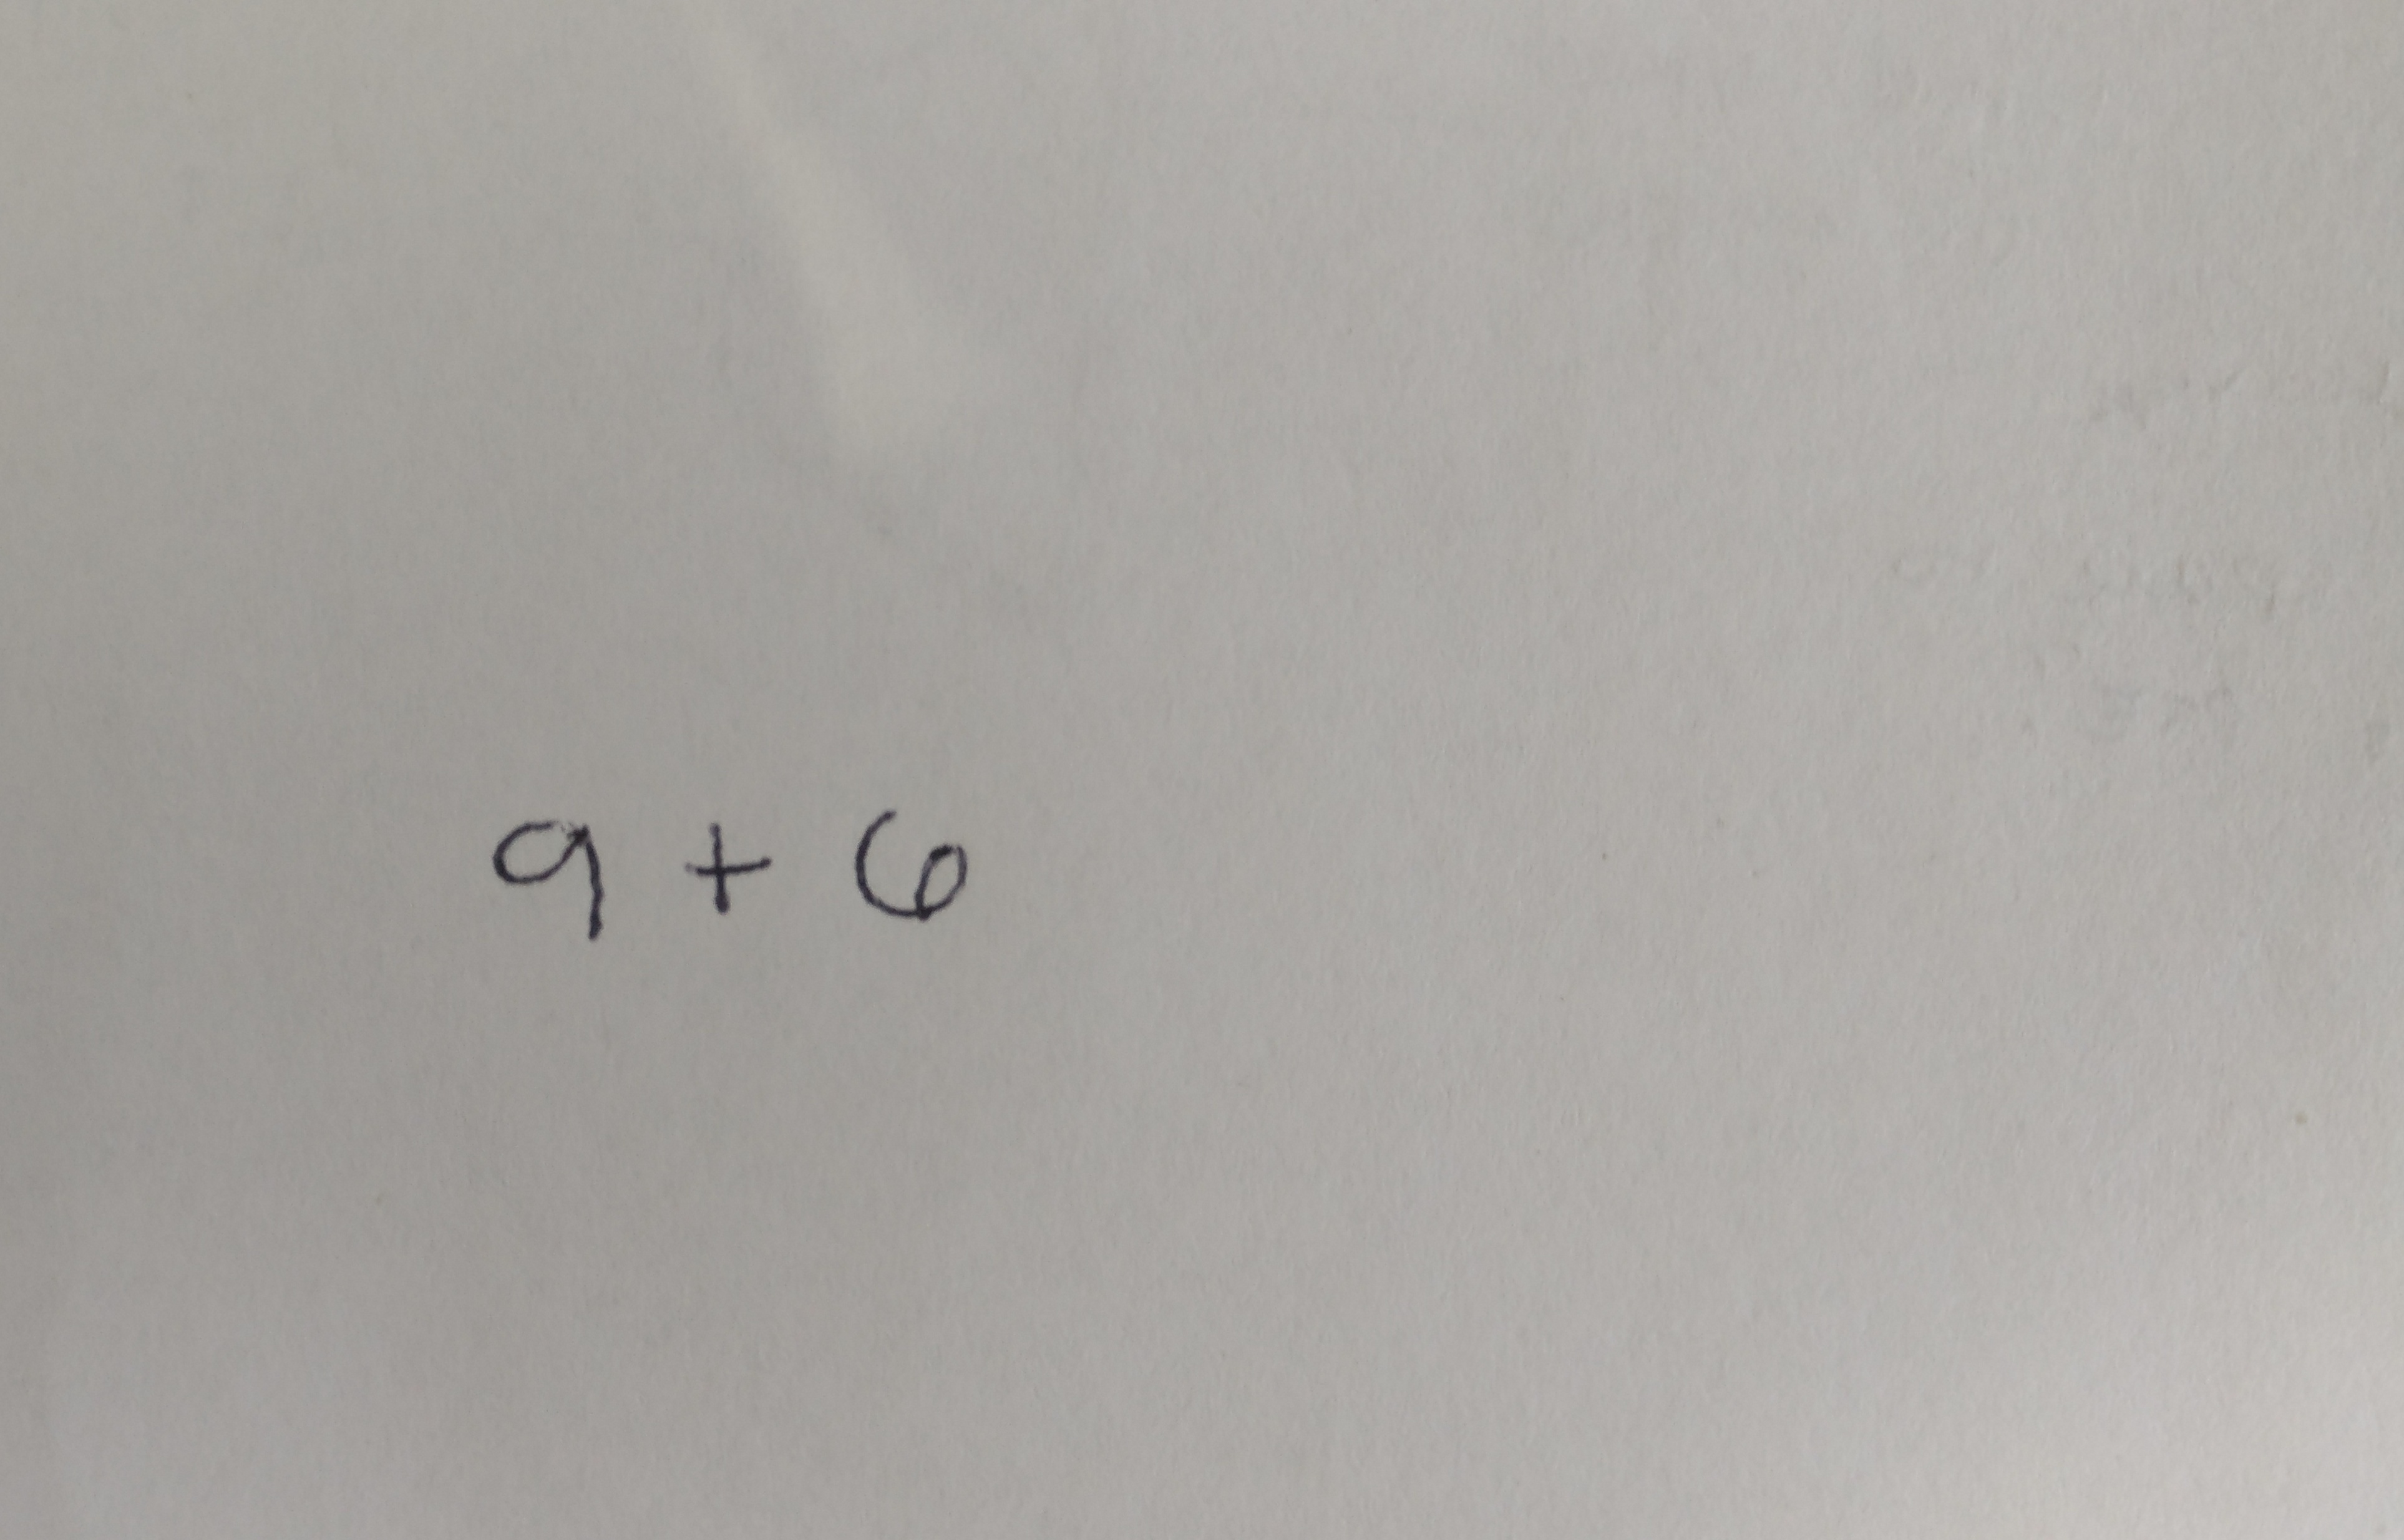 9 + 6